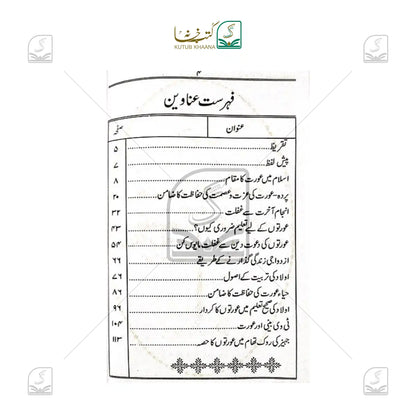 کتب خانہ
KUTUB KHAANA
۴
فہرست عناوین
عنوان صفحہ
تقریظ ۵
پیش لفظ ۷
اسلام میں عورت کا مقام ۸
پردہ۔عورت کی عزت و عصمت کی حفاظت کا ضامن ۲۰
انجام آخرت سے غفلت ۳۲
عورتوں کے لیے تعلیم ضروری کیوں؟ ۴۳
عورتوں کی دعوت دین سے غفلت مایوس کن ۵۴
ازدواجی زندگی گذارنے کے طریقے ۶۶
اولاد کی تربیت کے اصول ۷۶
حیاء عورت کی حفاظت کا ضامن ۸۶
اولاد کی صحیح تعلیم میں عورتوں کا کردار ۹۶
ٹی وی بینی اور عورت ۱۰۴
جہیز کی روک تھام میں عورتوں کا حصہ ۱۱۳